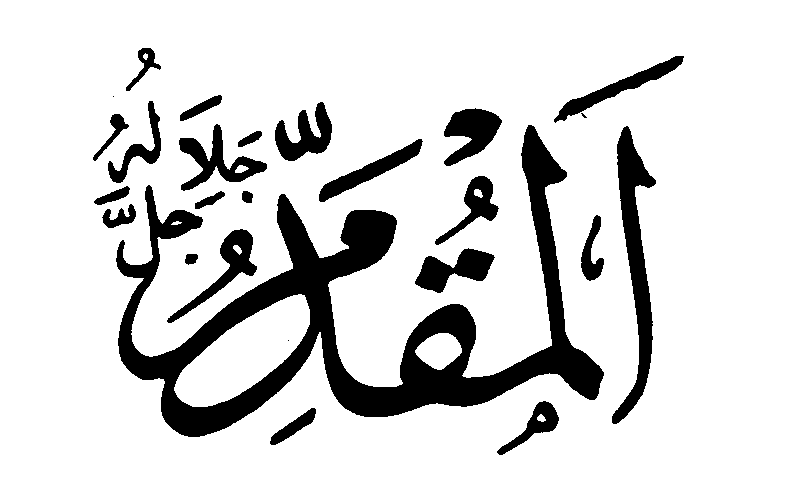 اَلْمُقَدِّمُ جَلَّ جَلَالُهُ